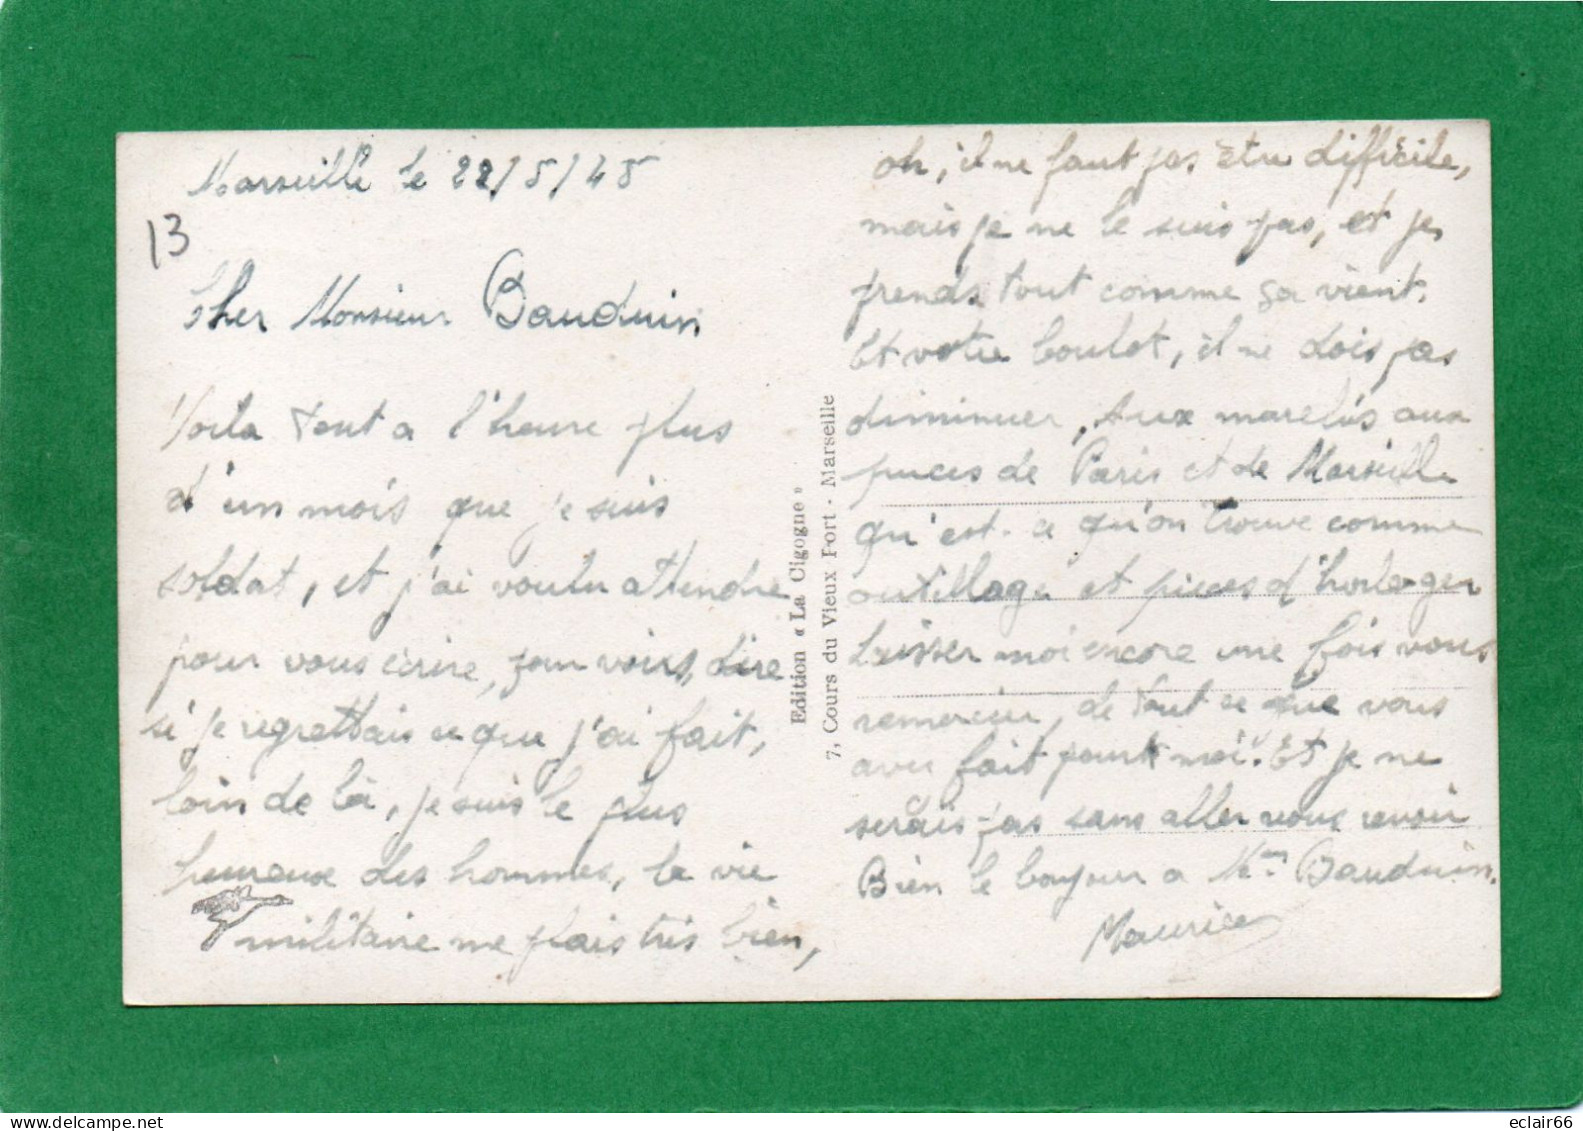 Marseille le 22/5/48
13
Cher Monsieur Bauduin
Voila tout a l'heure plus
d'un mois que je suis
soldat, et j'ai voulu attendre
pour vous écrire, pour vous, dire
si je regrettais ce que j'ai fait,
loin de là, je suis le plus
heureux des hommes, la vie
militaire me plais très bien,
Edition « La Cigogne »
7, Cours du Vieux Port - Marseille
oh, il ne faut pas être difficile,
mais je ne le suis pas, et je
prends tout comme ça vient.
Et votre boulot, il ne dois pas
diminuer, Aux marchés aux
puces de Paris et de Marseille
qu'est-ce qu'on trouve comme
outillage et pièces d'horloger
Laisser moi encore une fois vous
remercier, de tout ce que vous
avez fait pour moi. Et je ne
serais pas sans aller vous revoir
Bien le bonjour a Mme Bauduin.
Maurice
eclair66